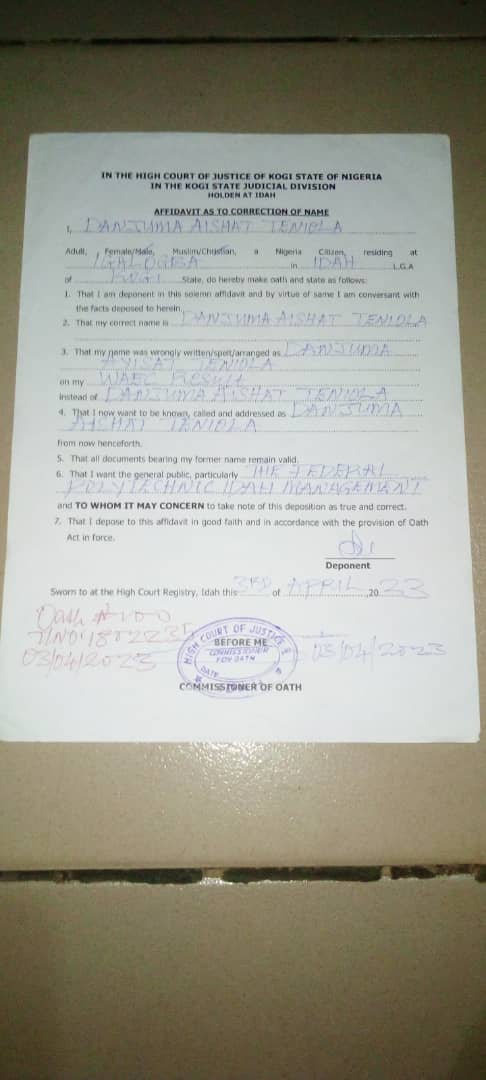 IN THE HIGH COURT OF JUSTICE OF KOGI STATE OF NIGERIA
IN THE KOGI STATE JUDICIAL DIVISION
HOLDEN AT IDAH
AFFIDAVIT AS TO CORRECTION OF NAME
I, DANJUMA AISHAT TENIOLA
Adult, Female/Male, Muslim/Christian, a Nigeria Citizen, residing at
IGALOGBA in IDAH L.G.A
of KOGI State, do hereby make oath and state as follows:
1. That I am deponent in this solemn affidavit and by virtue of same I am conversant with
the facts deposed to herein.
2. That my correct name is DANJUMA AISHAT TENIOLA
3. That my name was wrongly written/spelt/arranged as DANJUMA
AYISAT TENIOLA
on my WAEC Result
instead of DANJUMA AISHAT TENIOLA
4. That I now want to be known, called and addressed as DANJUMA
AISHAT TENIOLA
from now henceforth.
5. That all documents bearing my former name remain valid.
6. That I want the general public, particularly THE FEDERAL
POLYTECHNIC IDAH MANAGEMENT
and TO WHOM IT MAY CONCERN to take note of this deposition as true and correct.
7. That I depose to this affidavit in good faith and in accordance with the provision of Oath
Act in force.
Deponent
Sworn to at the High Court Registry, Idah this 3RD of APRIL, 20 23
Oath ₦100
03/04/2023
HIGH COURT OF JUSTICE
BEFORE ME
COMMISSIONER
FOR OATH
DATE
03/04/2023
COMMISSIONER OF OATH